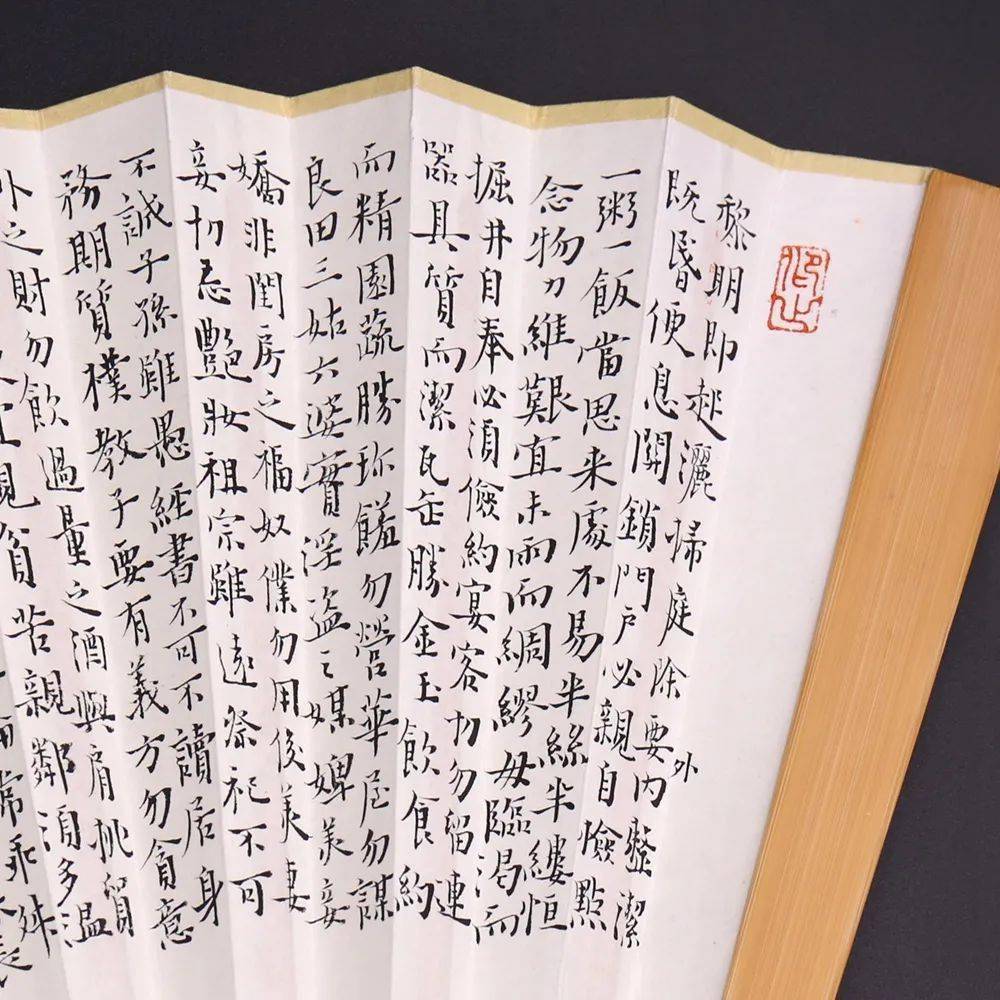 黎明即起灑掃庭除要內外整潔
既昬便息關鎖門戶必親自檢點
一粥一飯當思来處不易半絲半縷恒
念物力維艱宜未雨而綢繆毋臨渴而
掘井自奉必須儉約宴客切勿留連
器具質而潔瓦缶勝金玉飲食約
而精園蔬勝珍饈勿營華屋勿謀
良田三姑六婆實淫盗之媒婢美妾
嬌非閨房之福奴僕勿用俊美妻
妾切忌艷妝祖宗雖遠祭祀不可
不誠子孫雖愚經書不可不讀居身
務期質樸教子要有義方勿貪意
外之財勿飲過量之酒與肩挑貿
貧苦親鄰須多温
常乖舛